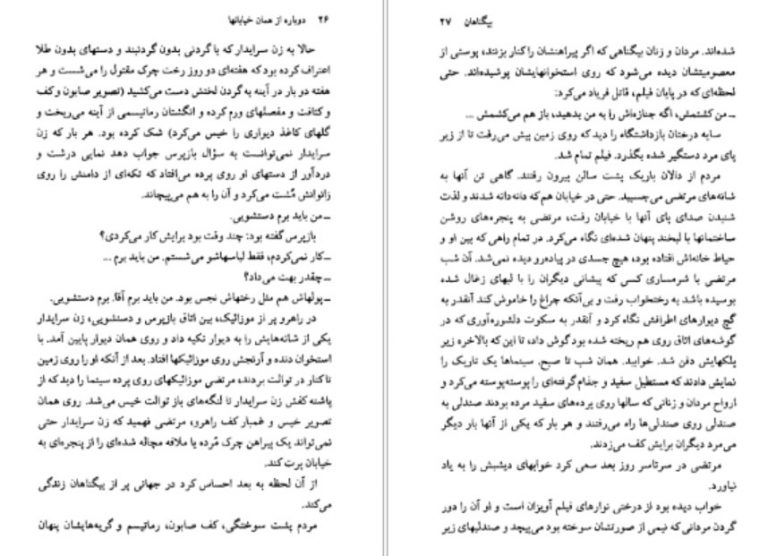 ۲۶ دوباره از همان خیابانها
حالا به زن سرایدار که با گردنی بدون گردنبند و دستهای بدون طلا
اعتراف کرده بود که هفته‌ای دو روز رخت چرک مقتول را می‌شست و هر
هفته دو بار در آینه به گردن لختش دست می‌کشید (تصویر صابون و کف
و کثافت و مفصلهای ورم کرده و انگشتان رماتیسمی از آینه می‌ریخت و
گلهای کاغذ دیواری را خیس می‌کرد) شک کرده بود. هر بار که زن
سرایدار نمی‌توانست به سؤال بازپرس جواب دهد نمایی درشت و
دردآور از دستهای او روی پرده می‌افتاد که تکه‌ای از دامنش را روی
زانوانش مُشت می‌کرد و آن را به هم می‌پیچاند.
ــ من باید برم دستشویی.
بازپرس گفته بود: چند وقت بود برایش کار می‌کردی؟
ــ کار نمی‌کردم، فقط لباسهاشو می‌شستم. من باید برم ...
ــ چقدر بهت می‌داد؟
ــ پولهاش هم مثل رختهاش نجس بود. من باید برم آقا. برم دستشویی.
در راهرو پر از موزائیک، بین اتاق بازپرس و دستشویی، زن سرایدار
یکی از شانه‌هایش را به دیوار تکیه داد و روی همان دیوار پایین آمد. با
استخوان دنده و آرنجش روی موزائیکها افتاد. بعد از آنکه او را روی زمین
تا کنار در توالت بردند، مرتضی موزائیکهای روی پرده سینما را دید که از
پاشنه کفش زن سرایدار تا لنگه‌های باز توالت خیس می‌شد. روی همان
تصویر خیس و غمبار کف راهرو، مرتضی فهمید که زن سرایدار حتی
نمی‌تواند یک پیراهن چرک مُرده یا ملافه مچاله شده‌ای را از پنجره‌ای به
خیابان پرت کند.
از آن لحظه به بعد احساس کرد در جهانی پر از بیگناهان زندگی
می‌کند.
مردم پشت سوختگی، کف صابون، رماتیسم و گریه‌هایشان پنهان
بیگناهان ۲۷
شده‌اند. مردان و زنان بیگناهی که اگر پیراهنشان را کنار بزنند، پوستی از
معصومیتشان دیده می‌شود که روی استخوانهایشان پوشیده‌اند. حتی
لحظه‌ای که در پایان فیلم، قاتل فریاد می‌کرد:
ــ من کشتمش، اگه جنازه‌اش را به من بدهید، باز هم می‌کشمش ...
سایه درختان بازداشتگاه را دید که روی زمین پیش می‌رفت تا از زیر
پای مرد دستگیر شده بگذرد. فیلم تمام شد.
مردم از دالان باریک پشت سالن بیرون رفتند. گاهی تن آنها به
شانه‌های مرتضی می‌چسبید. حتی در خیابان هم که دانه‌دانه شدند و لذت
شنیدن صدای پای آنها با خیابان رفت، مرتضی به پنجره‌های روشن
ساختمانها با لبخند پنهان شده‌ای نگاه می‌کرد. در تمام راهی که بین او و
حیاط خانه‌اش افتاده بود، هیچ جسدی در پیاده‌رو دیده نمی‌شد. آن شب
مرتضی با شرمساری کسی که پیشانی دیگران را با لبهای زغال شده
بوسیده باشد به رختخواب رفت و بی‌آنکه چراغ را خاموش کند آنقدر به
گچ دیوارهای اطرافش نگاه کرد و آنقدر به سکوت دلشوره‌آوری که در
گوشه‌های اتاق روی هم ریخته شده بود گوش داد، تا این که بالاخره زیر
پلکهایش دفن شد. خوابید. همان شب تا صبح، سینماها یک تاریک را
نمایش دادند که مستطیل سفید و جذام‌گرفته‌ای را پوسته‌پوسته می‌کرد و
ارواح مردان و زنانی که سالها روی پرده‌های سفید مرده بودند صندلی به
صندلی روی صندلی‌ها راه می‌رفتند و هر بار که یکی از آنها بار دیگر
می‌مرد دیگران برایش کف می‌زدند.
مرتضی در سرتاسر روز بعد سعی کرد خوابهای دیشبش را به یاد
نیاورد.
خواب دیده بود از درختی نوارهای فیلم آویزان است و او آن را دور
گردن مردانی که نیمی از صورتشان سوخته بود می‌پیچد و صندلیهای زیر